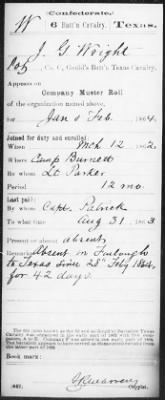 Confederate.
W 6 Batt'n Cavalry. Texas.
J G Wright
Pvt, Co. C, Gould's Batt'n Texas Cavalry.
Appears on
Company Muster Roll
of the organization named above,
for Jan & Feb, 1864.
Joined for duty and enrolled:
When Mch 12, 1862
Where Camp Burnett
By whom Lt Parker
Period 12 mo.
Last paid:
By whom Capt Patrick
To what time Aug 31, 1863
Present or absent absent
Remarks: Absent on Furlough
to Texas since 28" Feby 1864,
for 42 days.
Book mark:
Copyist.